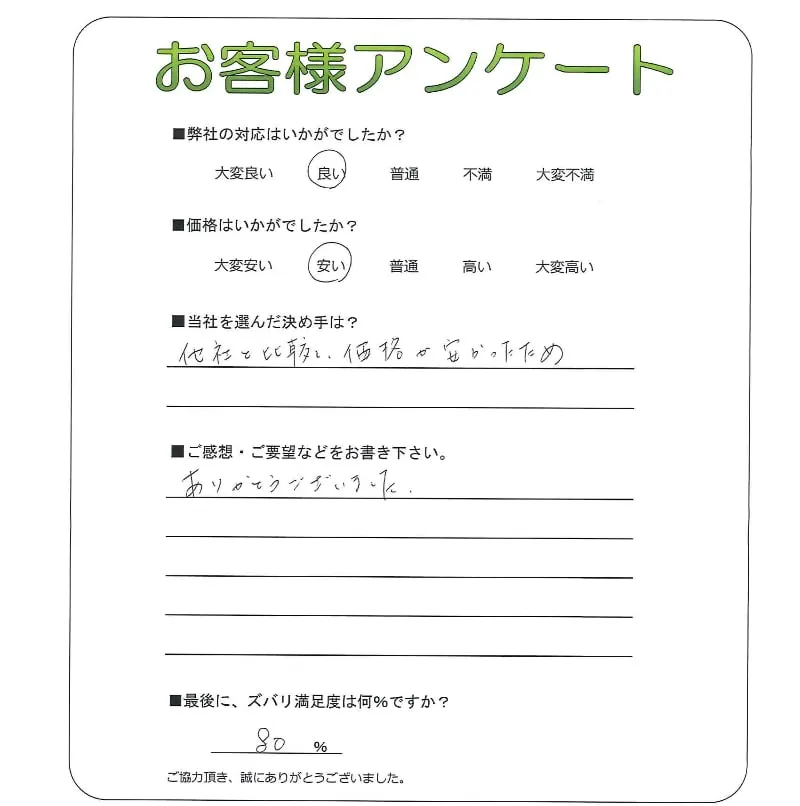 お客様アンケート
■弊社の対応はいかがでしたか？
大変良い 良い 普通 不満 大変不満
■価格はいかがでしたか？
大変安い 安い 普通 高い 大変高い
■当社を選んだ決め手は？
他社と比較し、価格が安かったため
■ご感想・ご要望などをお書き下さい。
ありがとうございました.
■最後に、ズバリ満足度は何%ですか？
80 %
ご協力頂き、誠にありがとうございました。